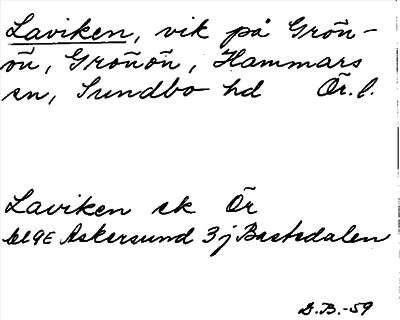 Laviken, vik på Grön-
ön, Grönön, Hammars
sn, Sundbo hd Ör. l.
Laviken ek Ör
bl 9E Askersund 3 j Bastedalen
D.B.-59